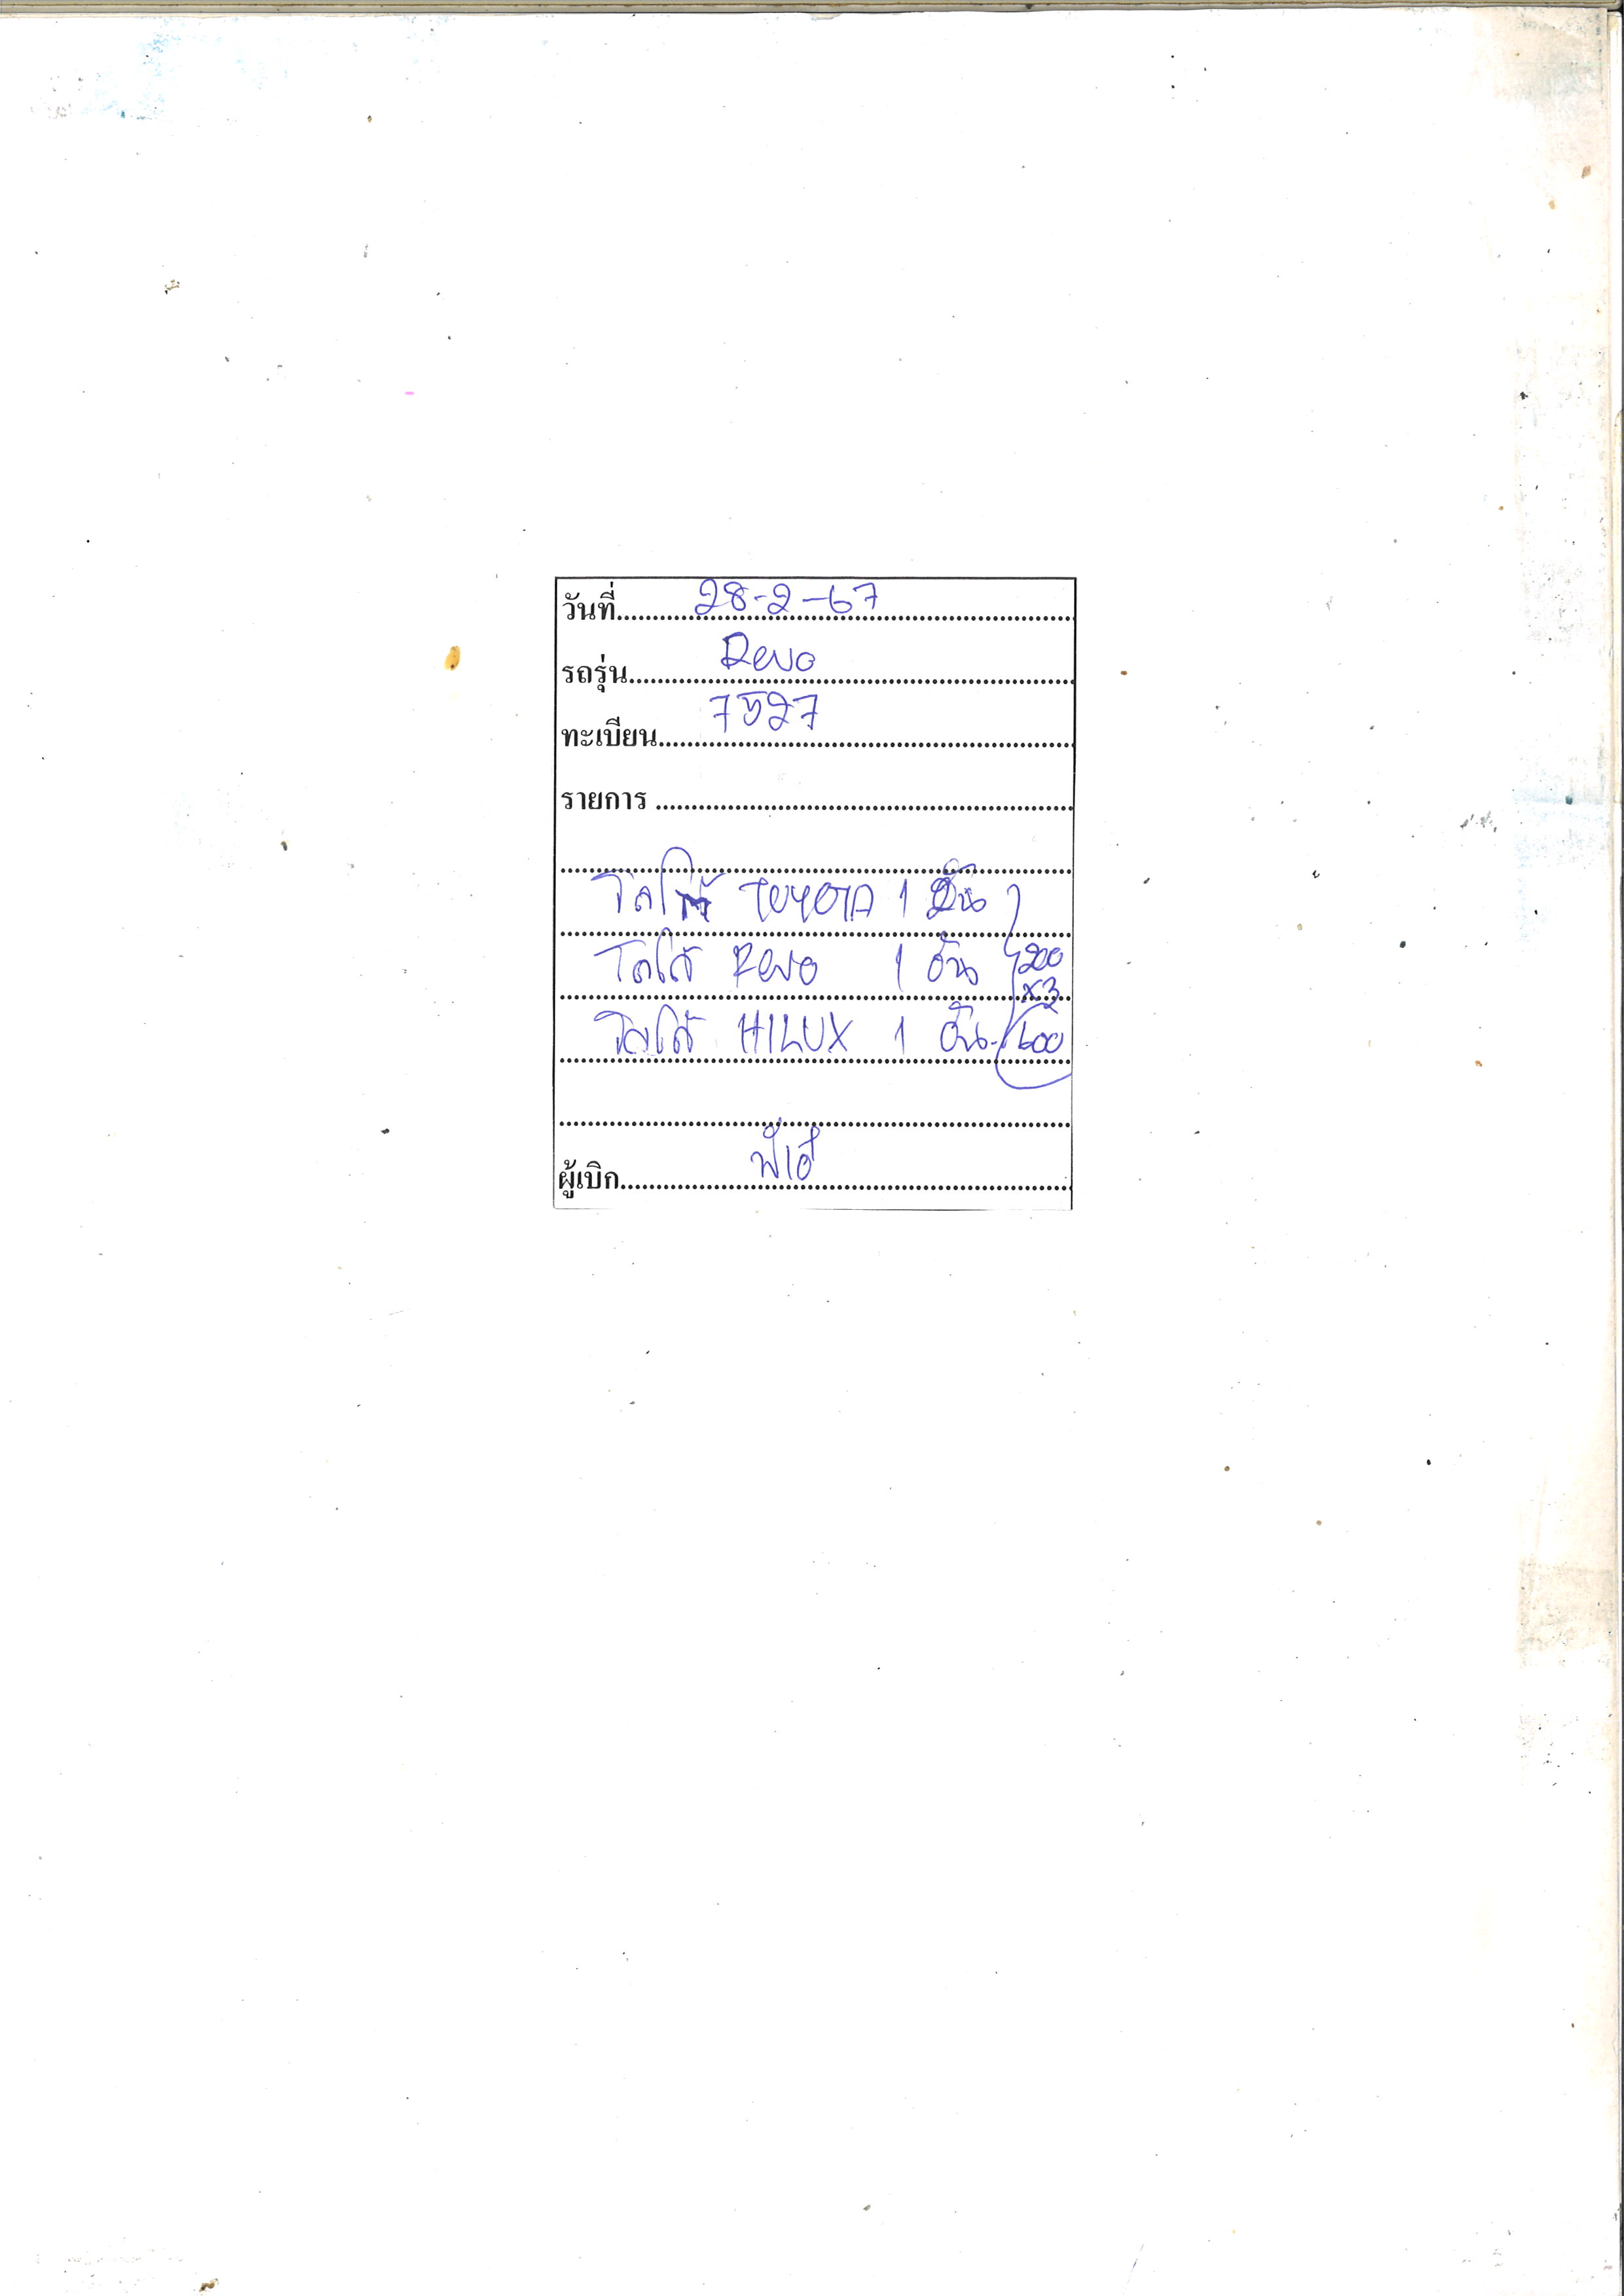 วันที่ 28-2-67
รถรุ่น Revo
ทะเบียน 7527
รายการ
โลโก้ TOYOTA 1 อัน
โลโก้ Revo 1 อัน 200
x3
โลโก้ HILUX 1 อัน. 600
ผู้เบิก